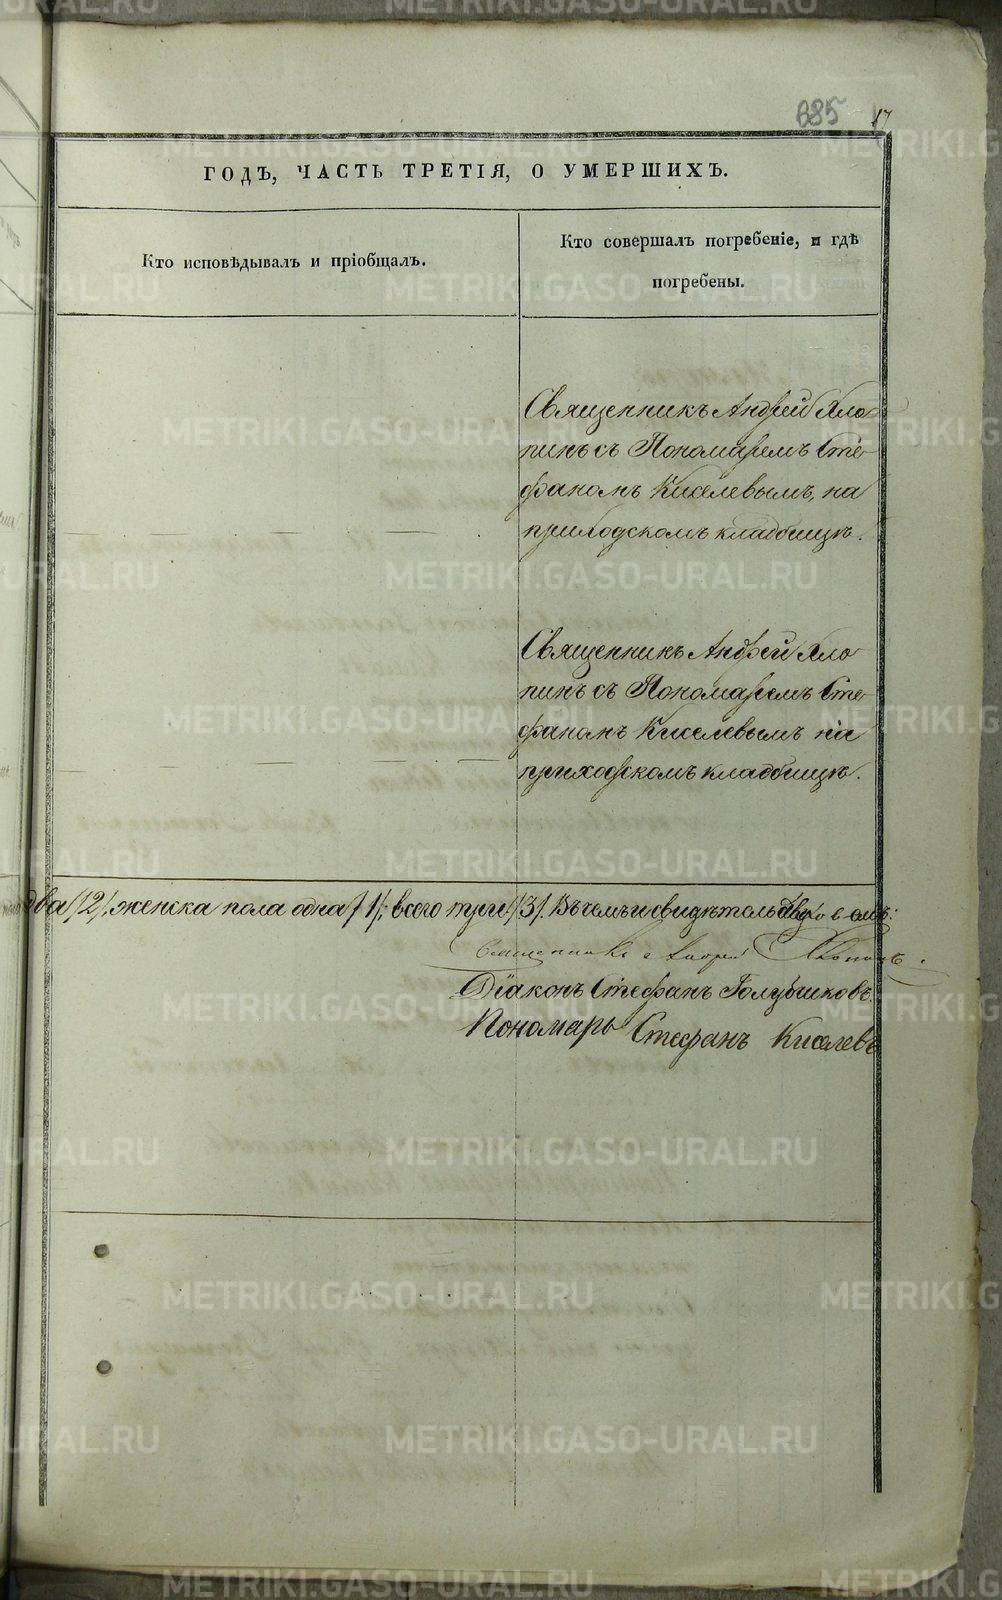 685 17
ГОДЪ, ЧАСТЬ ТРЕТІЯ, О УМЕРШИХЪ.
Кто исповѣдывалъ и пріобщалъ.
Кто совершалъ погребеніе, и гдѣ
погребены.
Священникъ Андрей Хло-
пинъ съ Пономаремъ Сте-
фаномъ Киселевымъ, на
приходскомъ кладбищѣ.
Священникъ Андрей Хло
пинъ съ Пономаремъ Сте-
фаномъ Киселевымъ на
приходскомъ кладбищѣ.
два /2/, женска пола одна /1/; всего три /3/. Въ чемъ и свидѣтельствуемъ:
Священникъ Андрей Хлопинъ.
Діаконъ Стефанъ Голубчиковъ.
Пономарь Стефанъ Киселевъ
METRIKI.GASO-URAL.RU